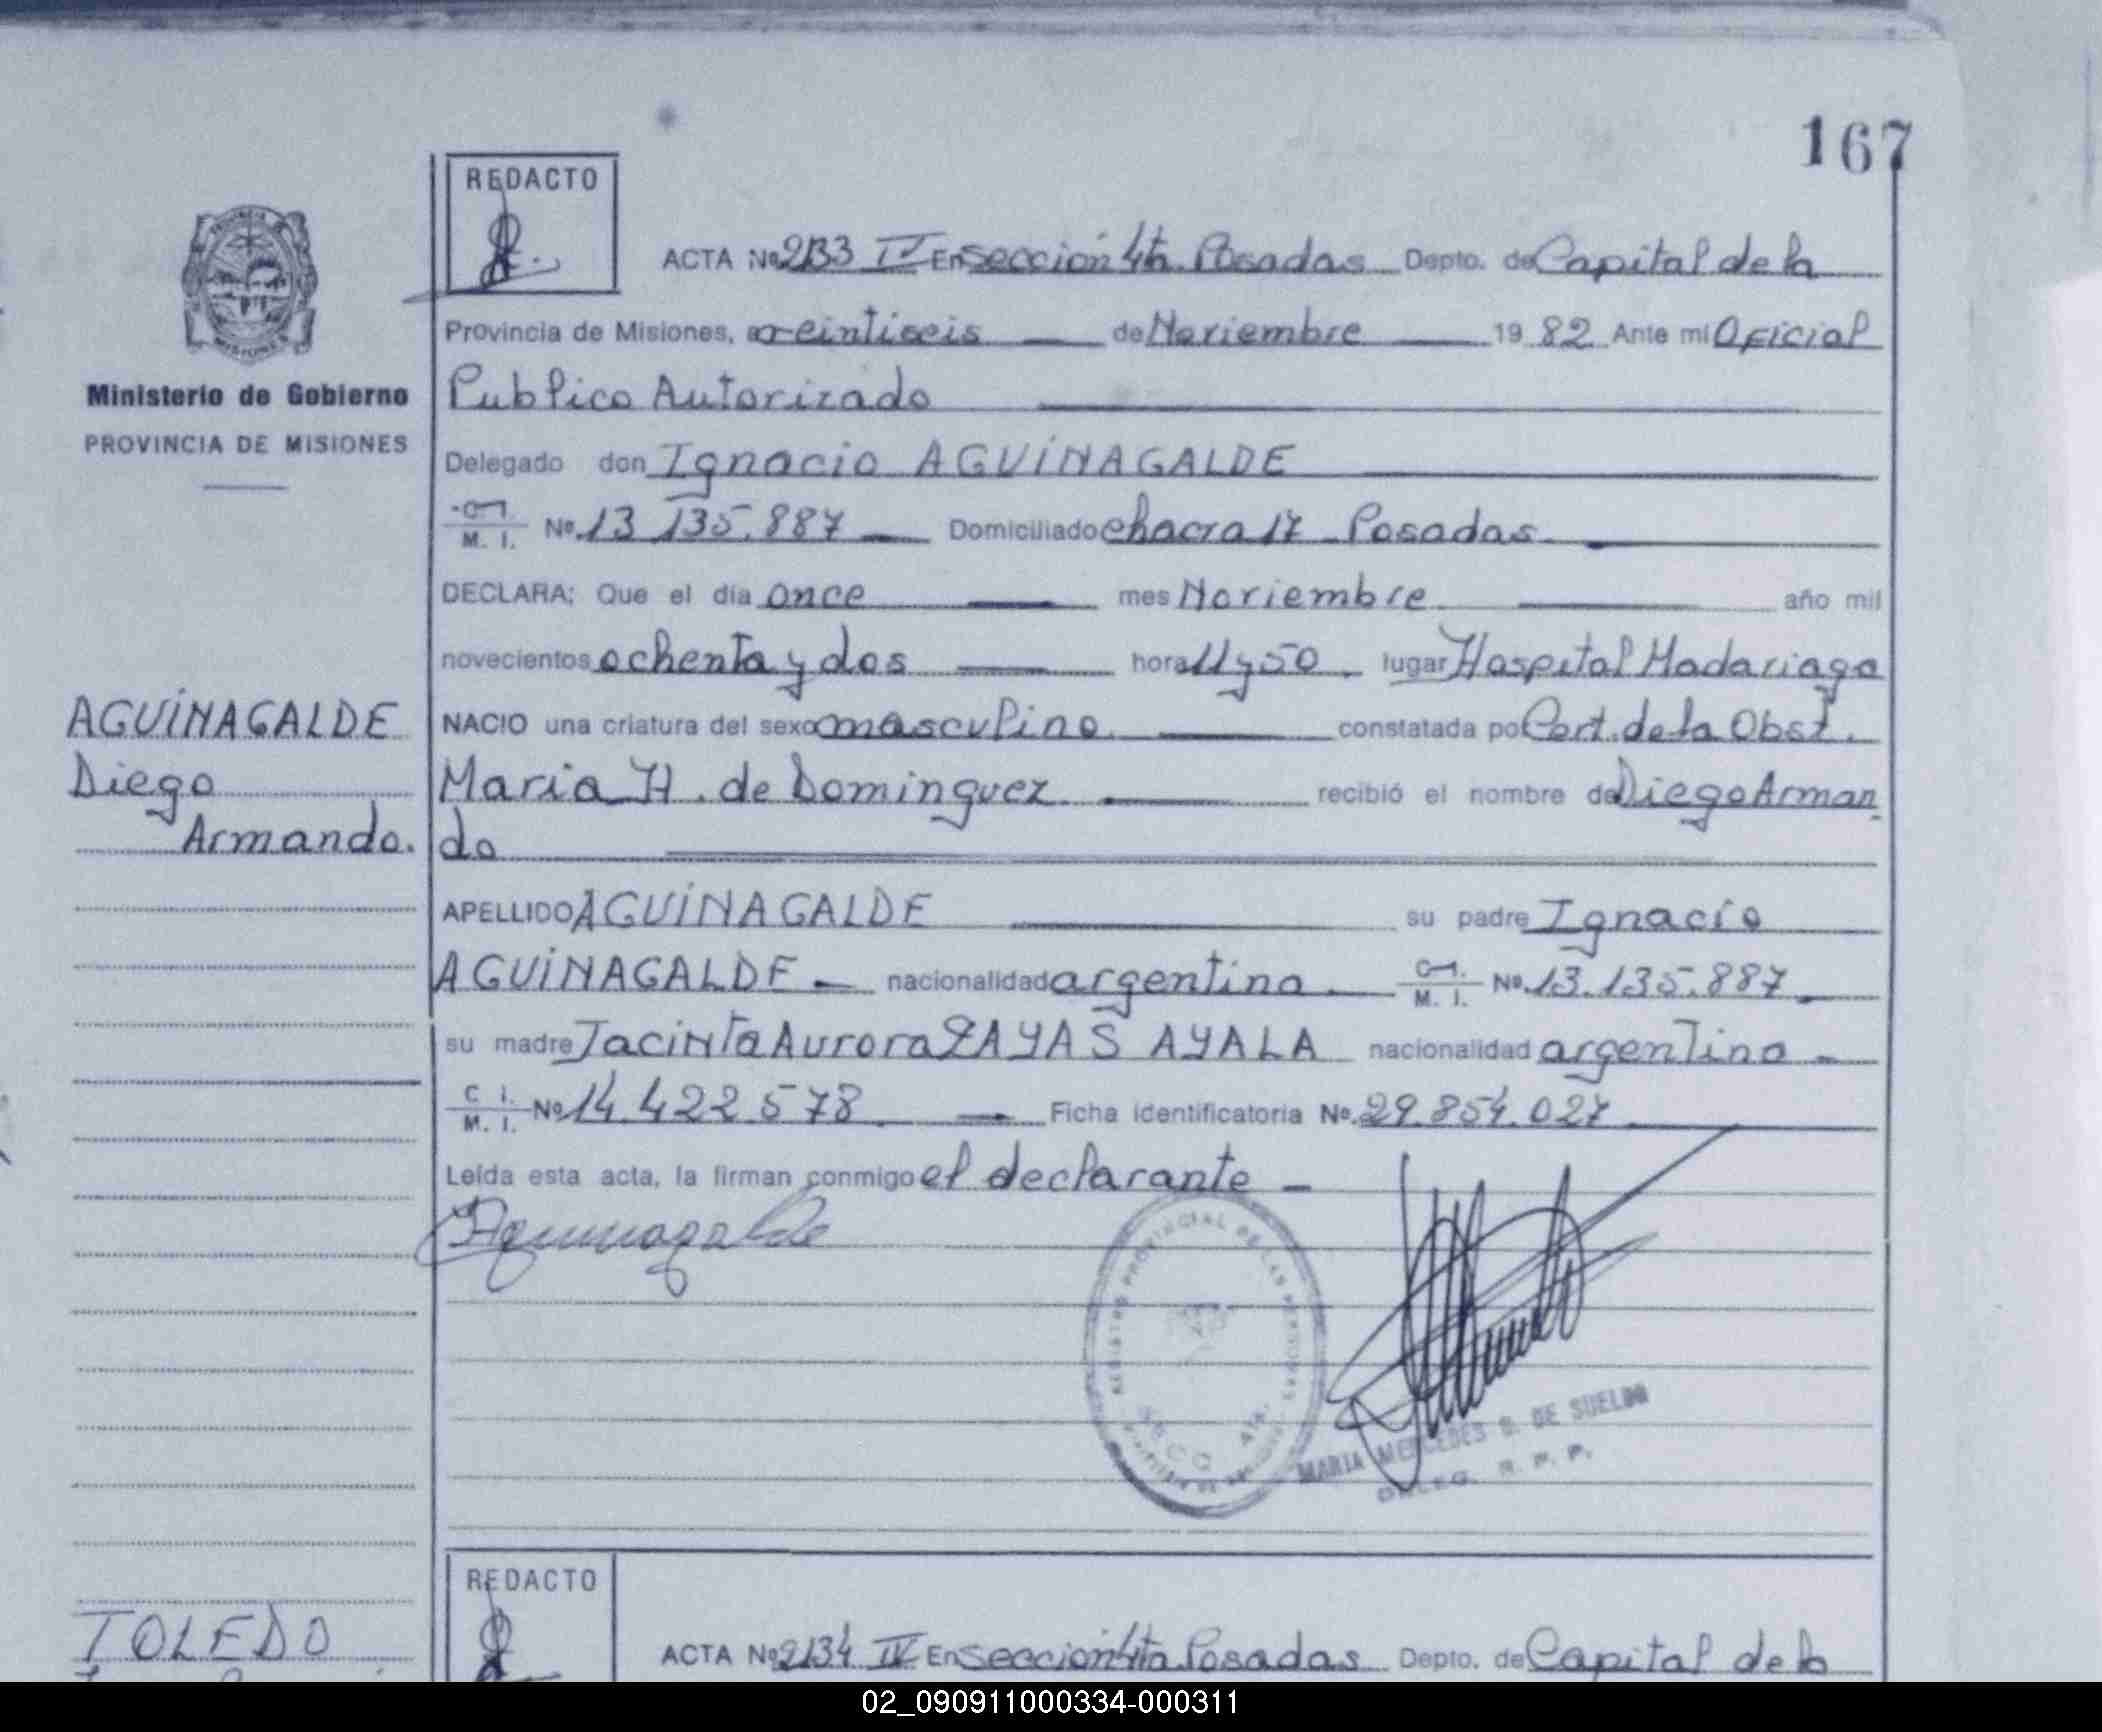 167
REDACTO
ACTA Nº 2133 IV En sección 4ta. Posadas Depto. de Capital de la
Provincia de Misiones, a veintiseis de Noviembre 19 82 Ante mi Oficial
Publico Autorizado
Delegado don Ignacio AGUINAGALDE
C. I. M. I. Nº 13.135.887 Domiciliado chacra 17 - Posadas.
DECLARA: Que el día once mes Noviembre año mil
novecientos ochenta y dos hora 11 y 50. lugar Hospital Madariaga
NACIO una criatura del sexo masculino constatada po Cert. de la Obst.
Maria H. de Dominguez recibió el nombre de Diego Arman
do
APELLIDO AGUINAGALDE su padre Ignacio
AGUINAGALDE nacionalidad argentina C. I. M. I. Nº 13.135.887
su madre Jacinta Aurora ZAYAS AYALA nacionalidad argentina
C. I. M. I. Nº 14.422.578 Ficha identificatoria Nº 29.854.027
Leída esta acta, la firman conmigo el declarante
Aguinagalde
REGISTRO PROVINCIAL DE LAS PERSONAS
SECC 4ta.
MARIA MERCEDES B. DE SUELDO
DELEG. R. P. P.
PROVINCIA DE MISIONES
Ministerio de Gobierno
PROVINCIA DE MISIONES
AGUINAGALDE
Diego
Armando.
REDACTO
TOLEDO
ACTA Nº 2134 IV En sección 4ta Posadas Depto. de Capital de la
02_090911000334-000311